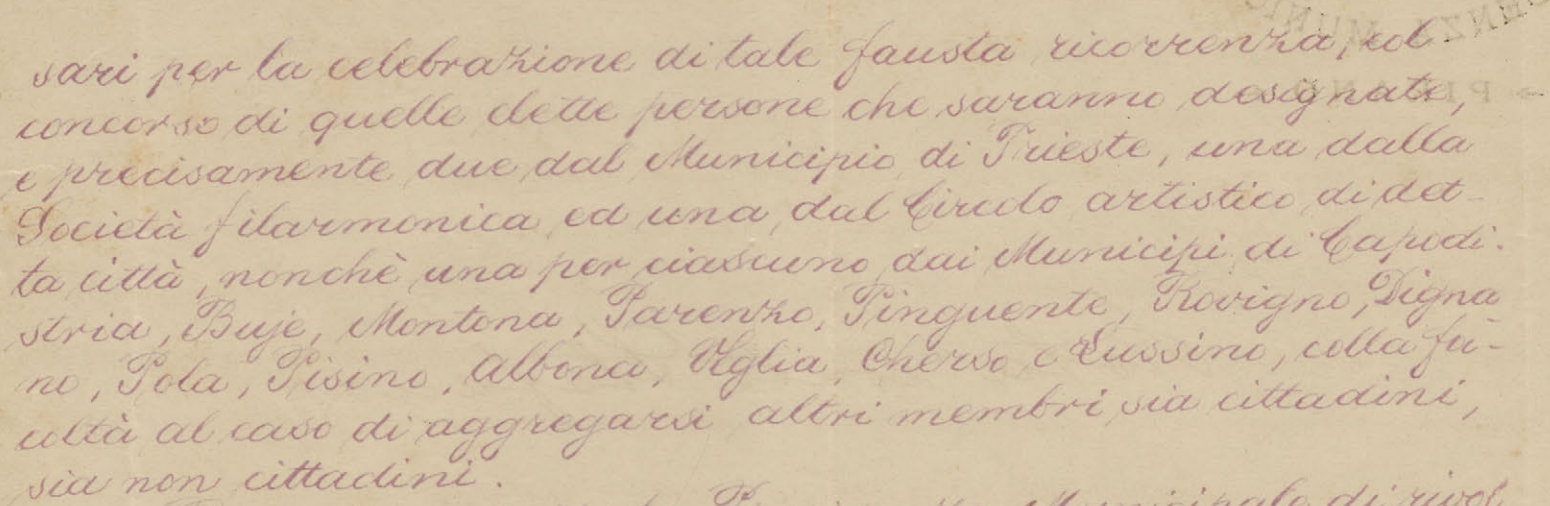 sari per la celebrazione di tale fausta ricorrenza, col
concorso di quelle elette persone che saranno designate,
e precisamente due dal Municipio di Trieste, una dalla
Società filarmonica ed una dal Circolo artistico di det-
ta città, nonchè una per ciascuno dai Municipi di Capodi-
stria, Buje, Montona, Parenzo, Pinguente, Rovigno, Digna
no, Pola, Pisino, Albona, Veglia, Cherso e Lussino, colla fa-
coltà al caso di aggregarsi altri membri sia cittadini,
sia non cittadini.
Municipale di rivol